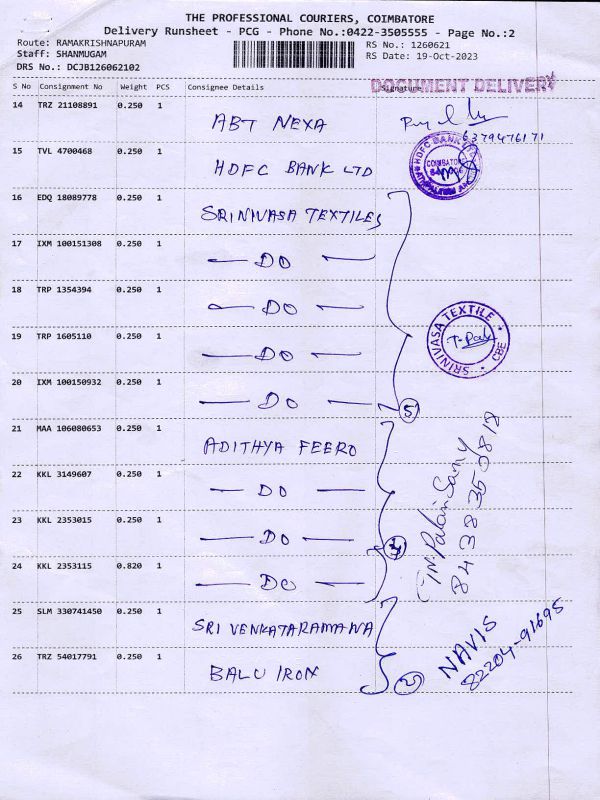 THE PROFESSIONAL COURIERS, COIMBATORE
Delivery Runsheet - PCG - Phone No.:0422-3505555 - Page No.:2
Route: RAMAKRISHNAPURAM RS No.: 1260621
Staff: SHANMUGAM RS Date: 19-Oct-2023
DRS No.: DCJB126062102
DOCUMENT DELIVERY
S No Consignment No Weight PCS Consignee Details Signature
14 TRZ 21108891 0.250 1 ABT NEXA
6379476171
15 TVL 4700468 0.250 1 HDFC BANK LTD
HDFC BANK LTD
16 EDQ 18089778 0.250 1 SRINIVASA TEXTILES
17 IXM 100151308 0.250 1 — DO —
18 TRP 1354394 0.250 1 — DO —
SRINIVASA TEXTILE CBE
19 TRP 1605110 0.250 1 — DO —
20 IXM 100150932 0.250 1 — DO — 5
21 MAA 106080653 0.250 1 ADITHYA FEERO
22 KKL 3149607 0.250 1 — DO —
23 KKL 2353015 0.250 1 — DO — 4
24 KKL 2353115 0.820 1 — DO —
8438350818
25 SLM 330741450 0.250 1 SRI VENKATARAMANA
26 TRZ 54017791 0.250 1 BALU IRON 2
NAVIS
82204-91695